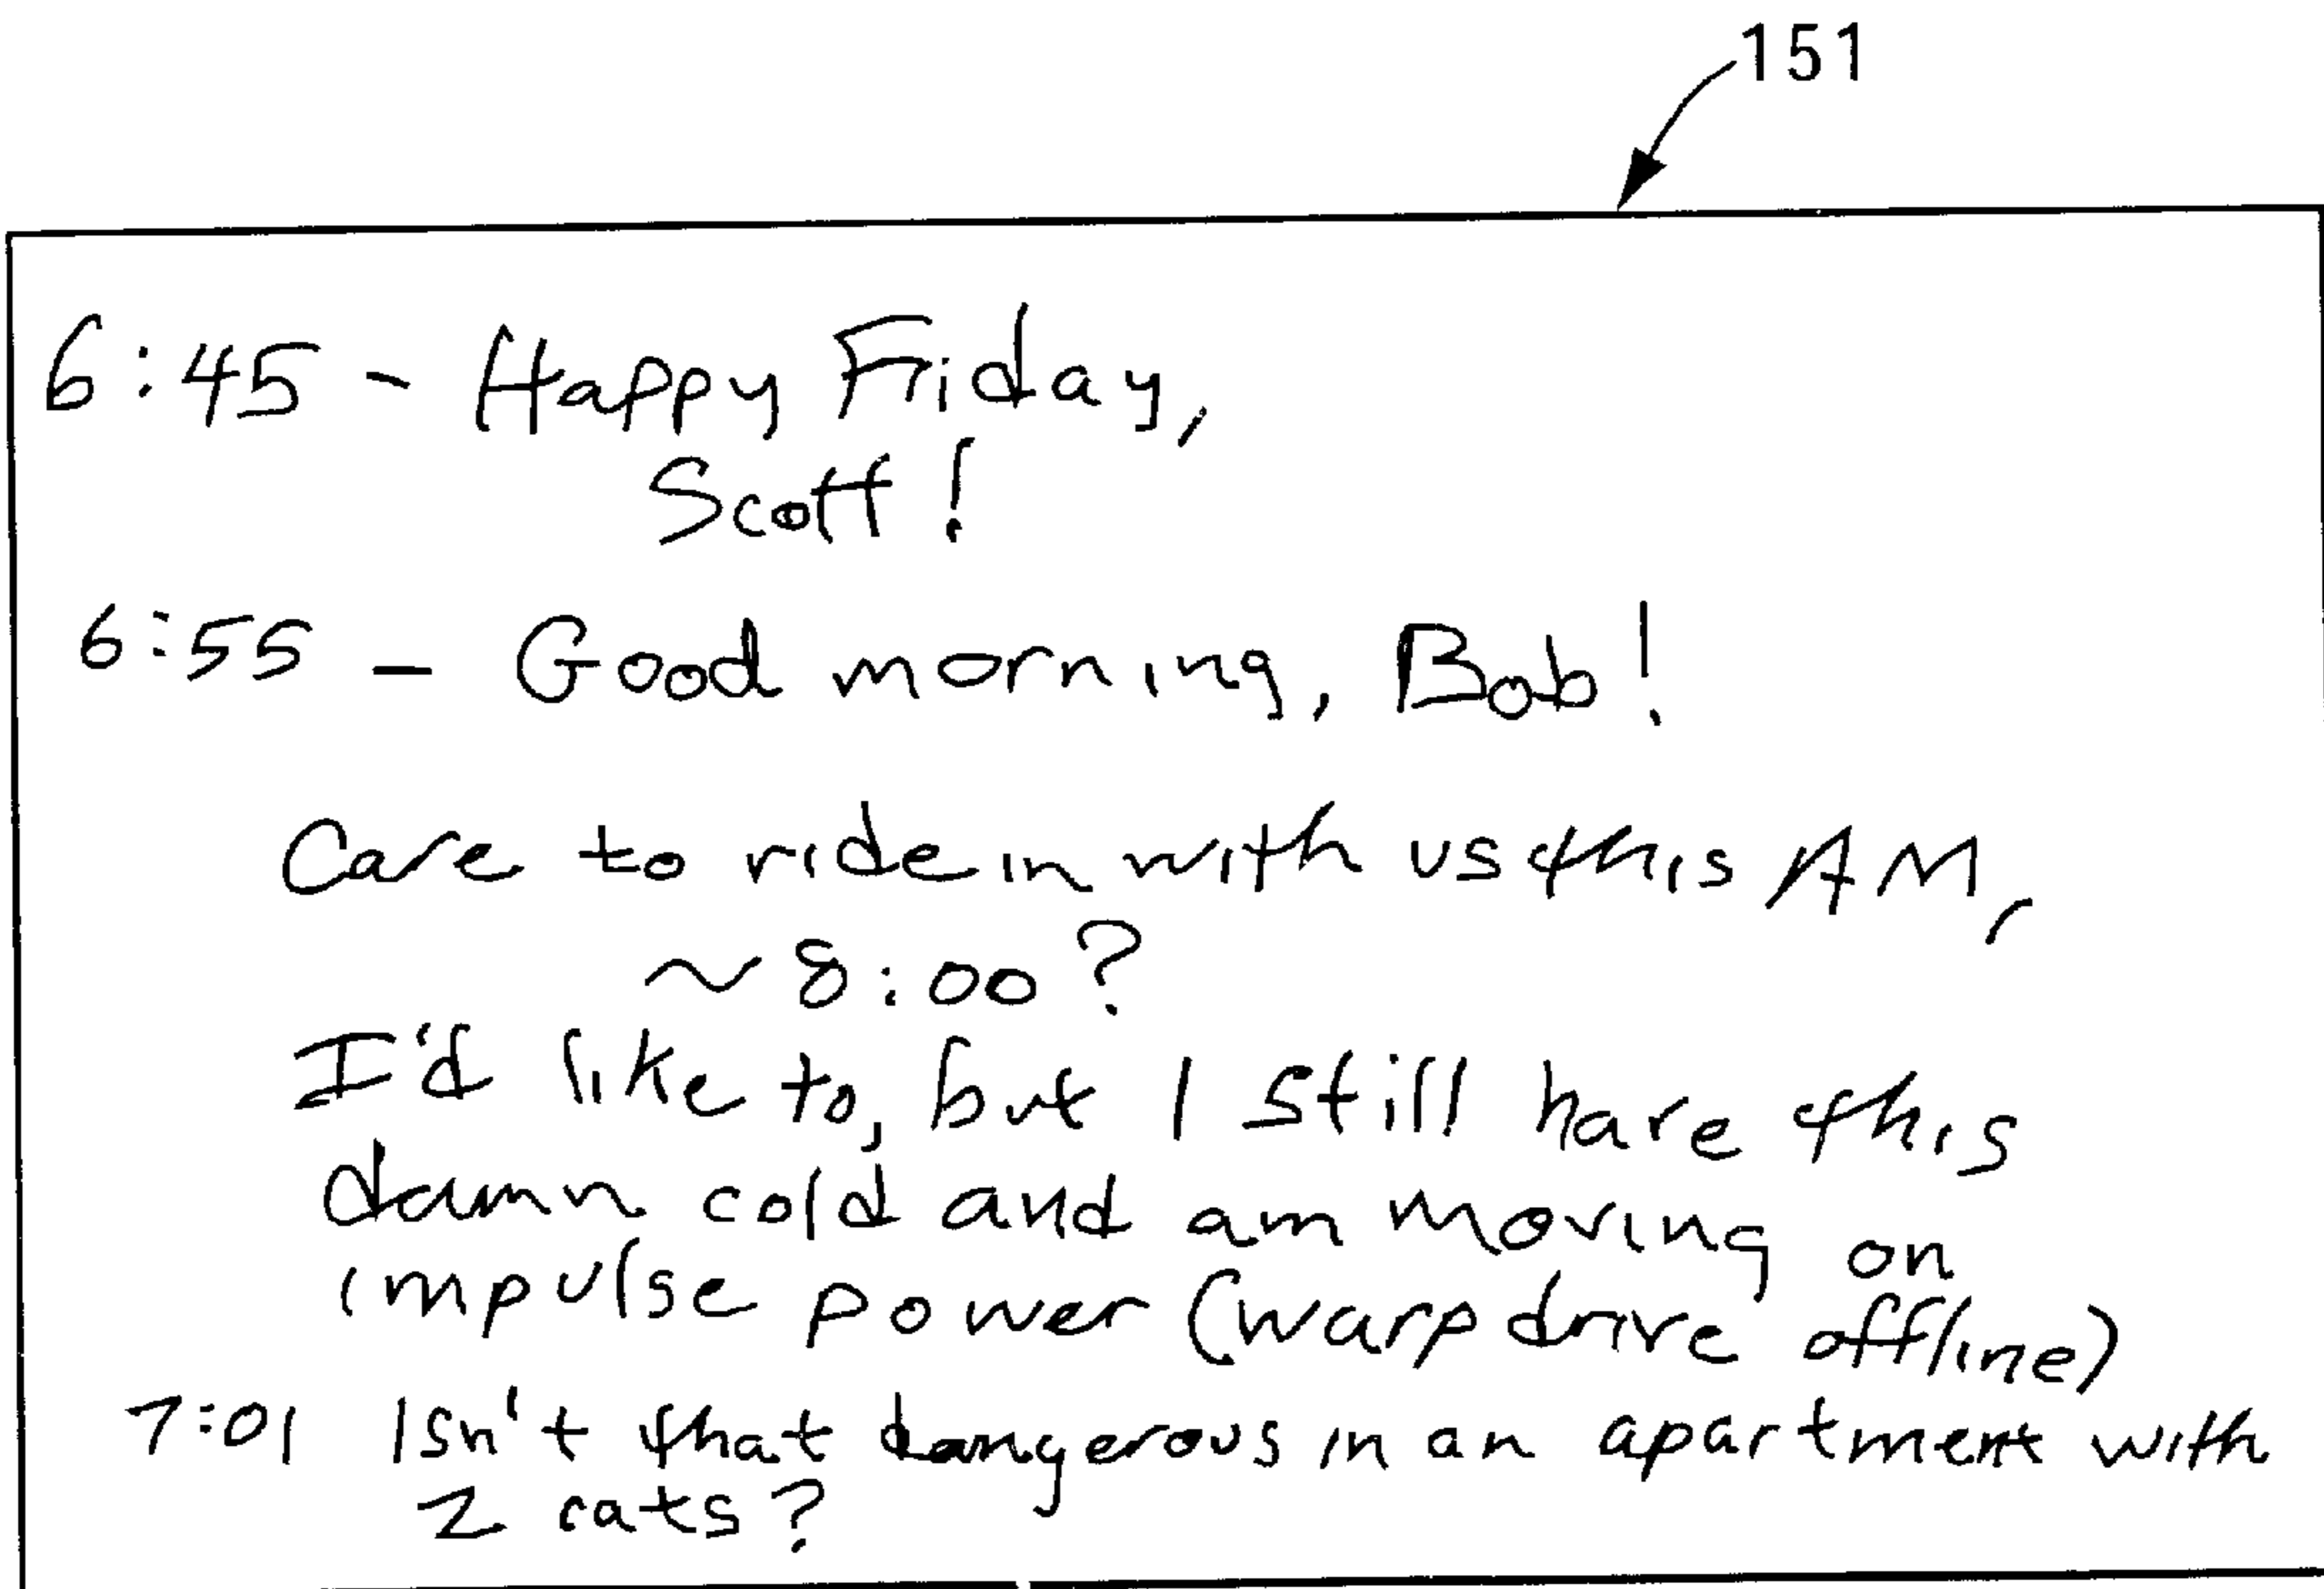 151
6:45 - Happy Friday,
Scott!
6:55 - Good morning, Bob!
Care to ride in with us this AM,
~8:00?
I'd like to, but I still have this
damn cold and am moving on
impulse power (warp drive offline)
7:01 Isn't that dangerous in an apartment with
2 cats?